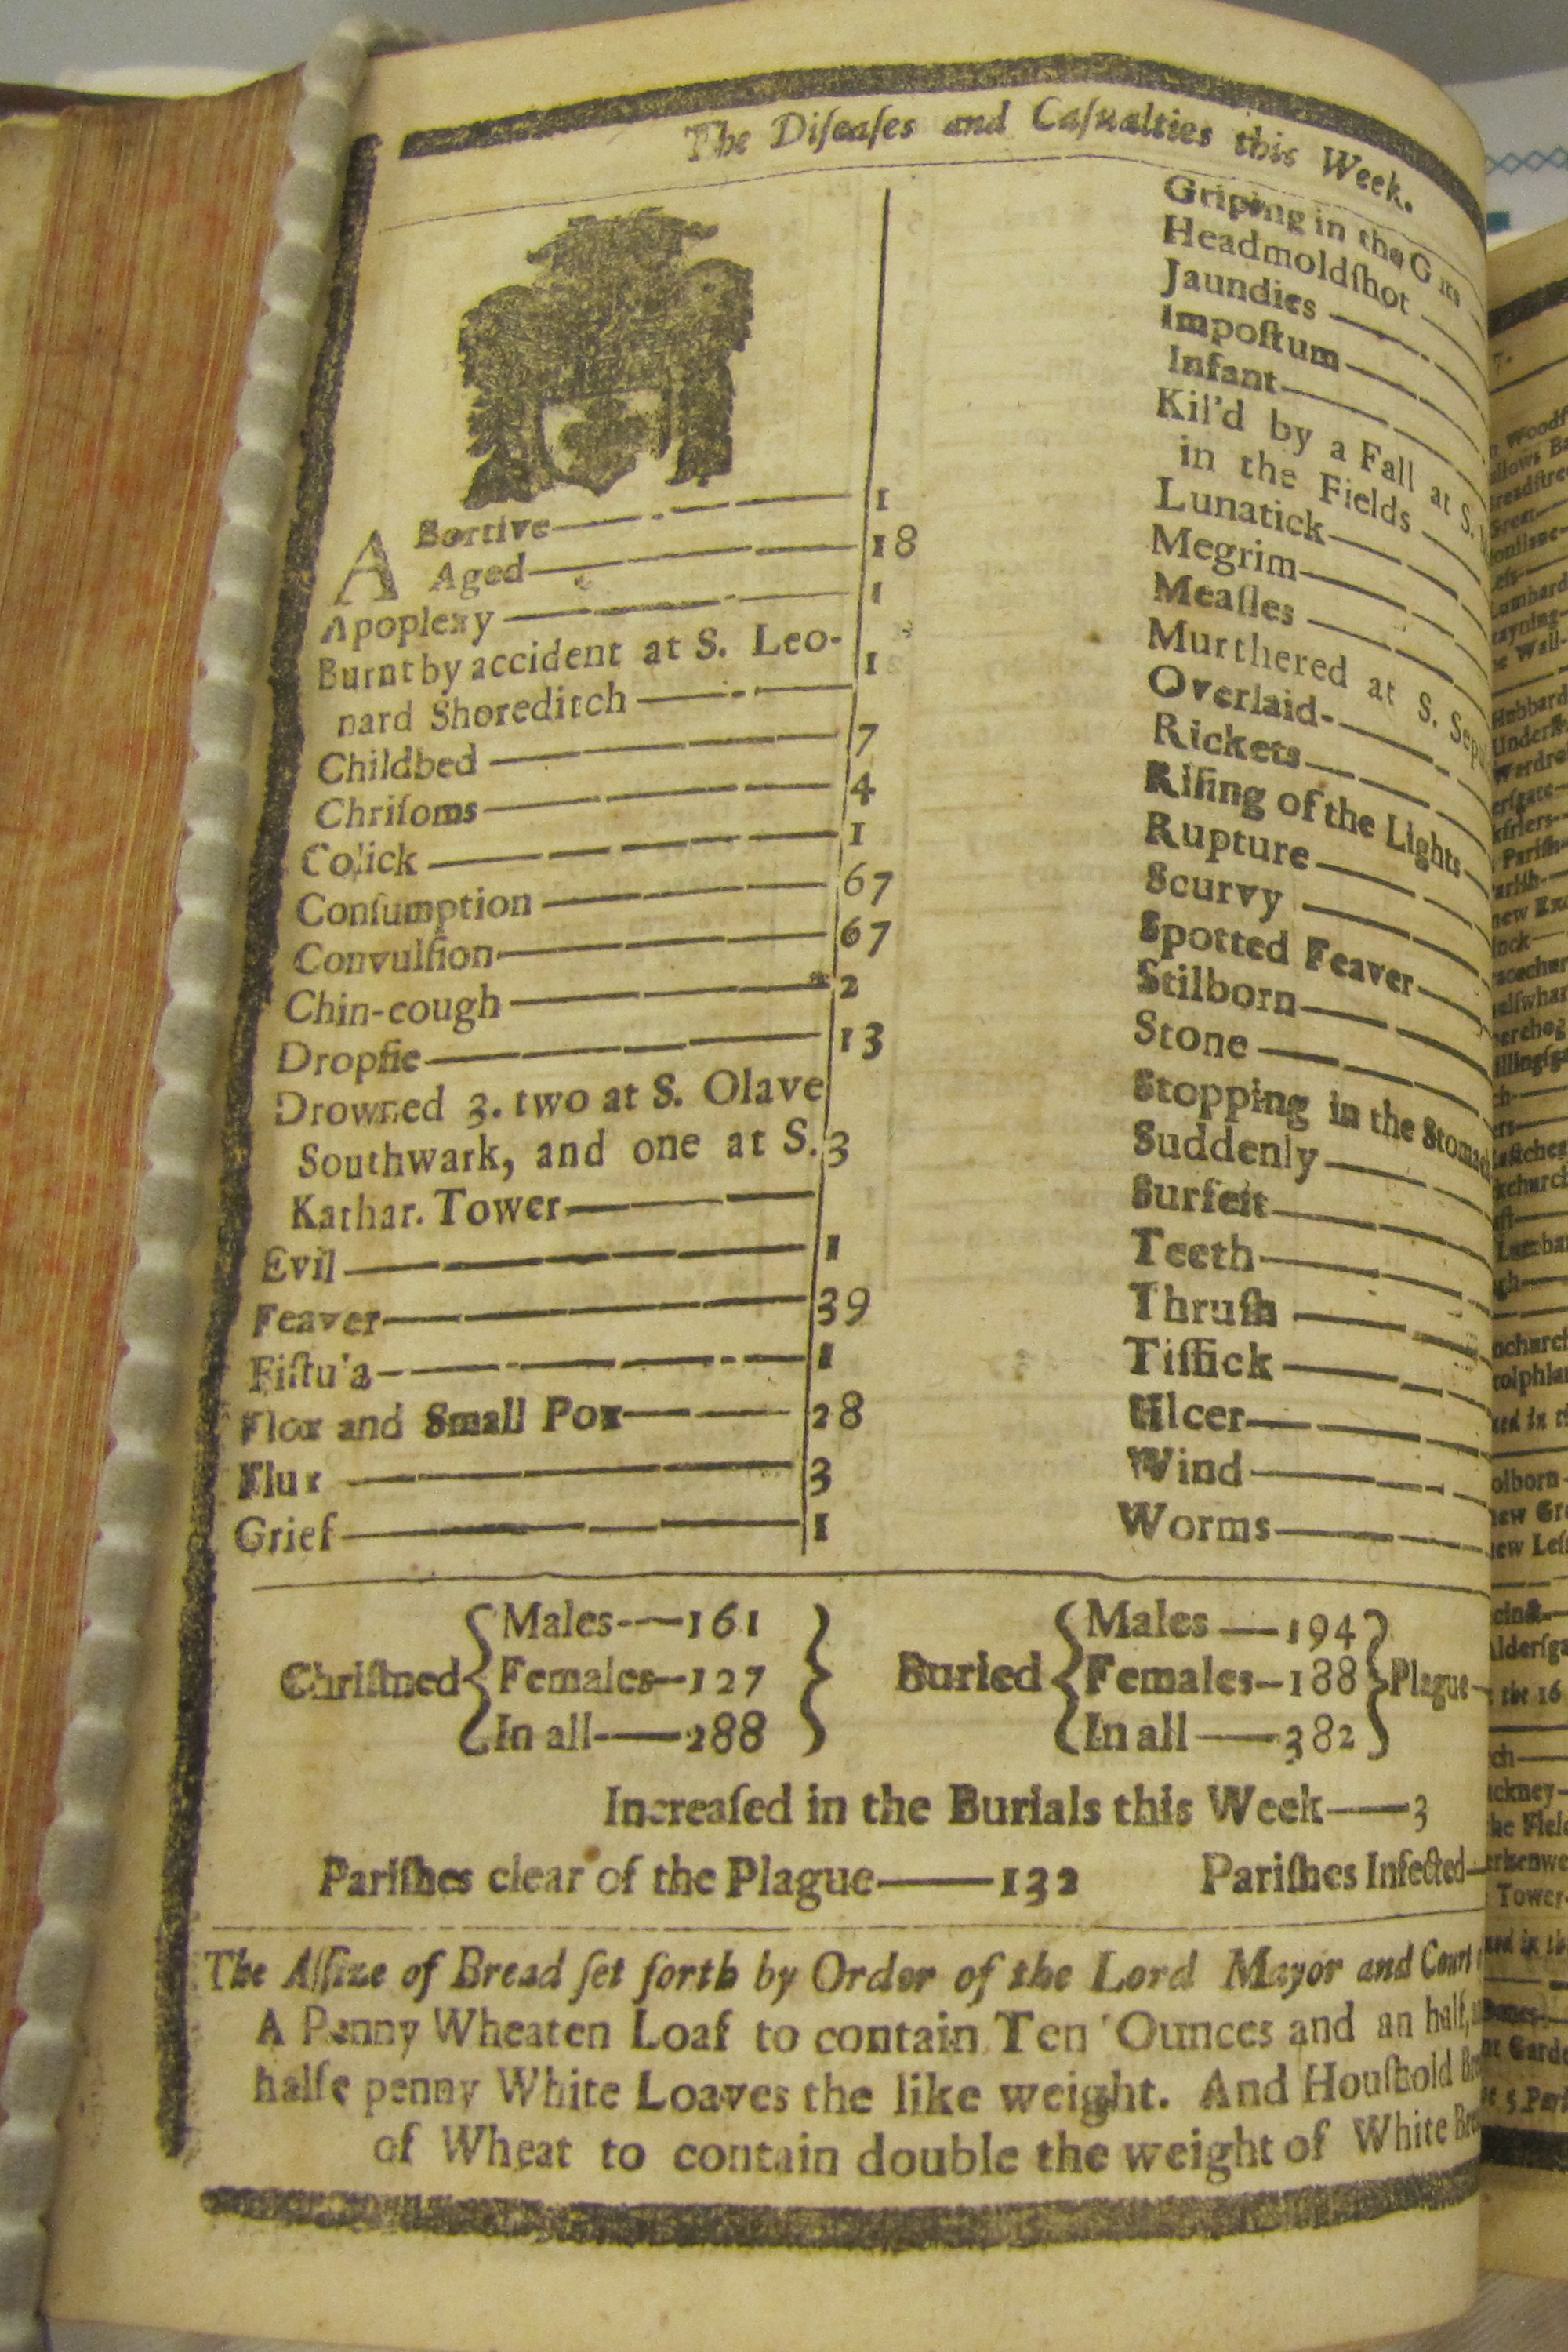 The Diſeaſes and Caſualties this Week.
ABortive 1
Aged 18
Apoplexy 1
Burnt by accident at S. Leo-
nard Shoreditch 1
Childbed 7
Chriſoms 4
Colick 1
Conſumption 67
Convulſion 67
Chin-cough 2
Dropſie 13
Drowned 3. two at S. Olave
Southwark, and one at S. 3
Kathar. Tower
Evil 1
Feaver 39
Fiſtu'a 1
Flox and Small Pox 28
Flux 3
Grief 1
Griping in the
Headmoldſhot
Jaundies
Impoſtum
Infant
Kil'd by a Fall at S.
in the Fields
Lunatick
Megrim
Meaſles
Murthered at S. Sepu
Overlaid
Rickets
Riſing of the Lights
Rupture
Scurvy
Spotted Feaver
Stilborn
Stone
Stopping in the Stomach
Suddenly
Surfeit
Teeth
Thruſh
Tiſſick
Ulcer
Wind
Worms
Chriſtned { Males 161 } Buried { Males 194 }
Females 127 Females 188 Plague
In all 288 In all 382
Increaſed in the Burials this Week 3
Pariſhes clear of the Plague 132 Pariſhes Infected
The Aſſize of Bread ſet forth by Order of the Lord Mayor and Court
A Penny Wheaten Loaf to contain Ten Ounces and an half,
halfe penny White Loaves the like weight. And Houſhold
of Wheat to contain double the weight of White